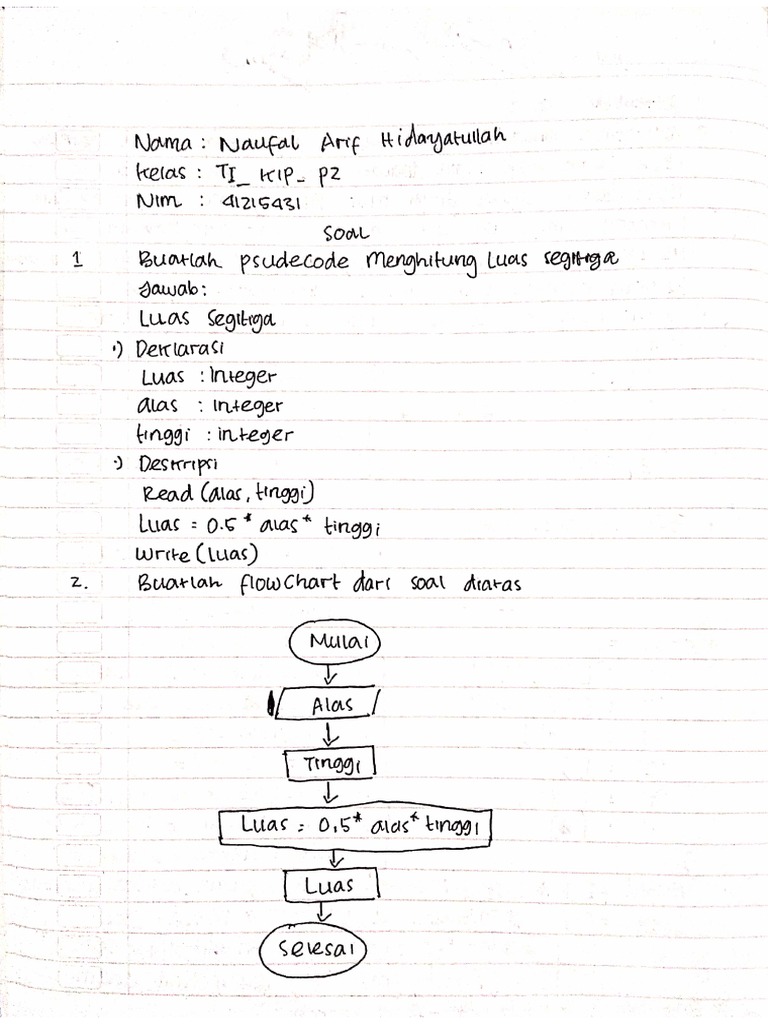 Nama : Naufal Arif Hidayatullah
Kelas : TI_ KIP_ P2
Nim : 41215431
Soal
1 Buatlah psudecode Menghitung Luas segitiga
Jawab:
Luas Segitiga
·) Deklarasi
Luas : Integer
alas : integer
tinggi : integer
·) Deskripsi
Read (alas, tinggi)
Luas = 0.5 * alas * tinggi
Write (Luas)
2. Buatlah flowchart dari soal diatas
Mulai
Alas
Tinggi
Luas = 0,5 * alas * tinggi
Luas
Selesai